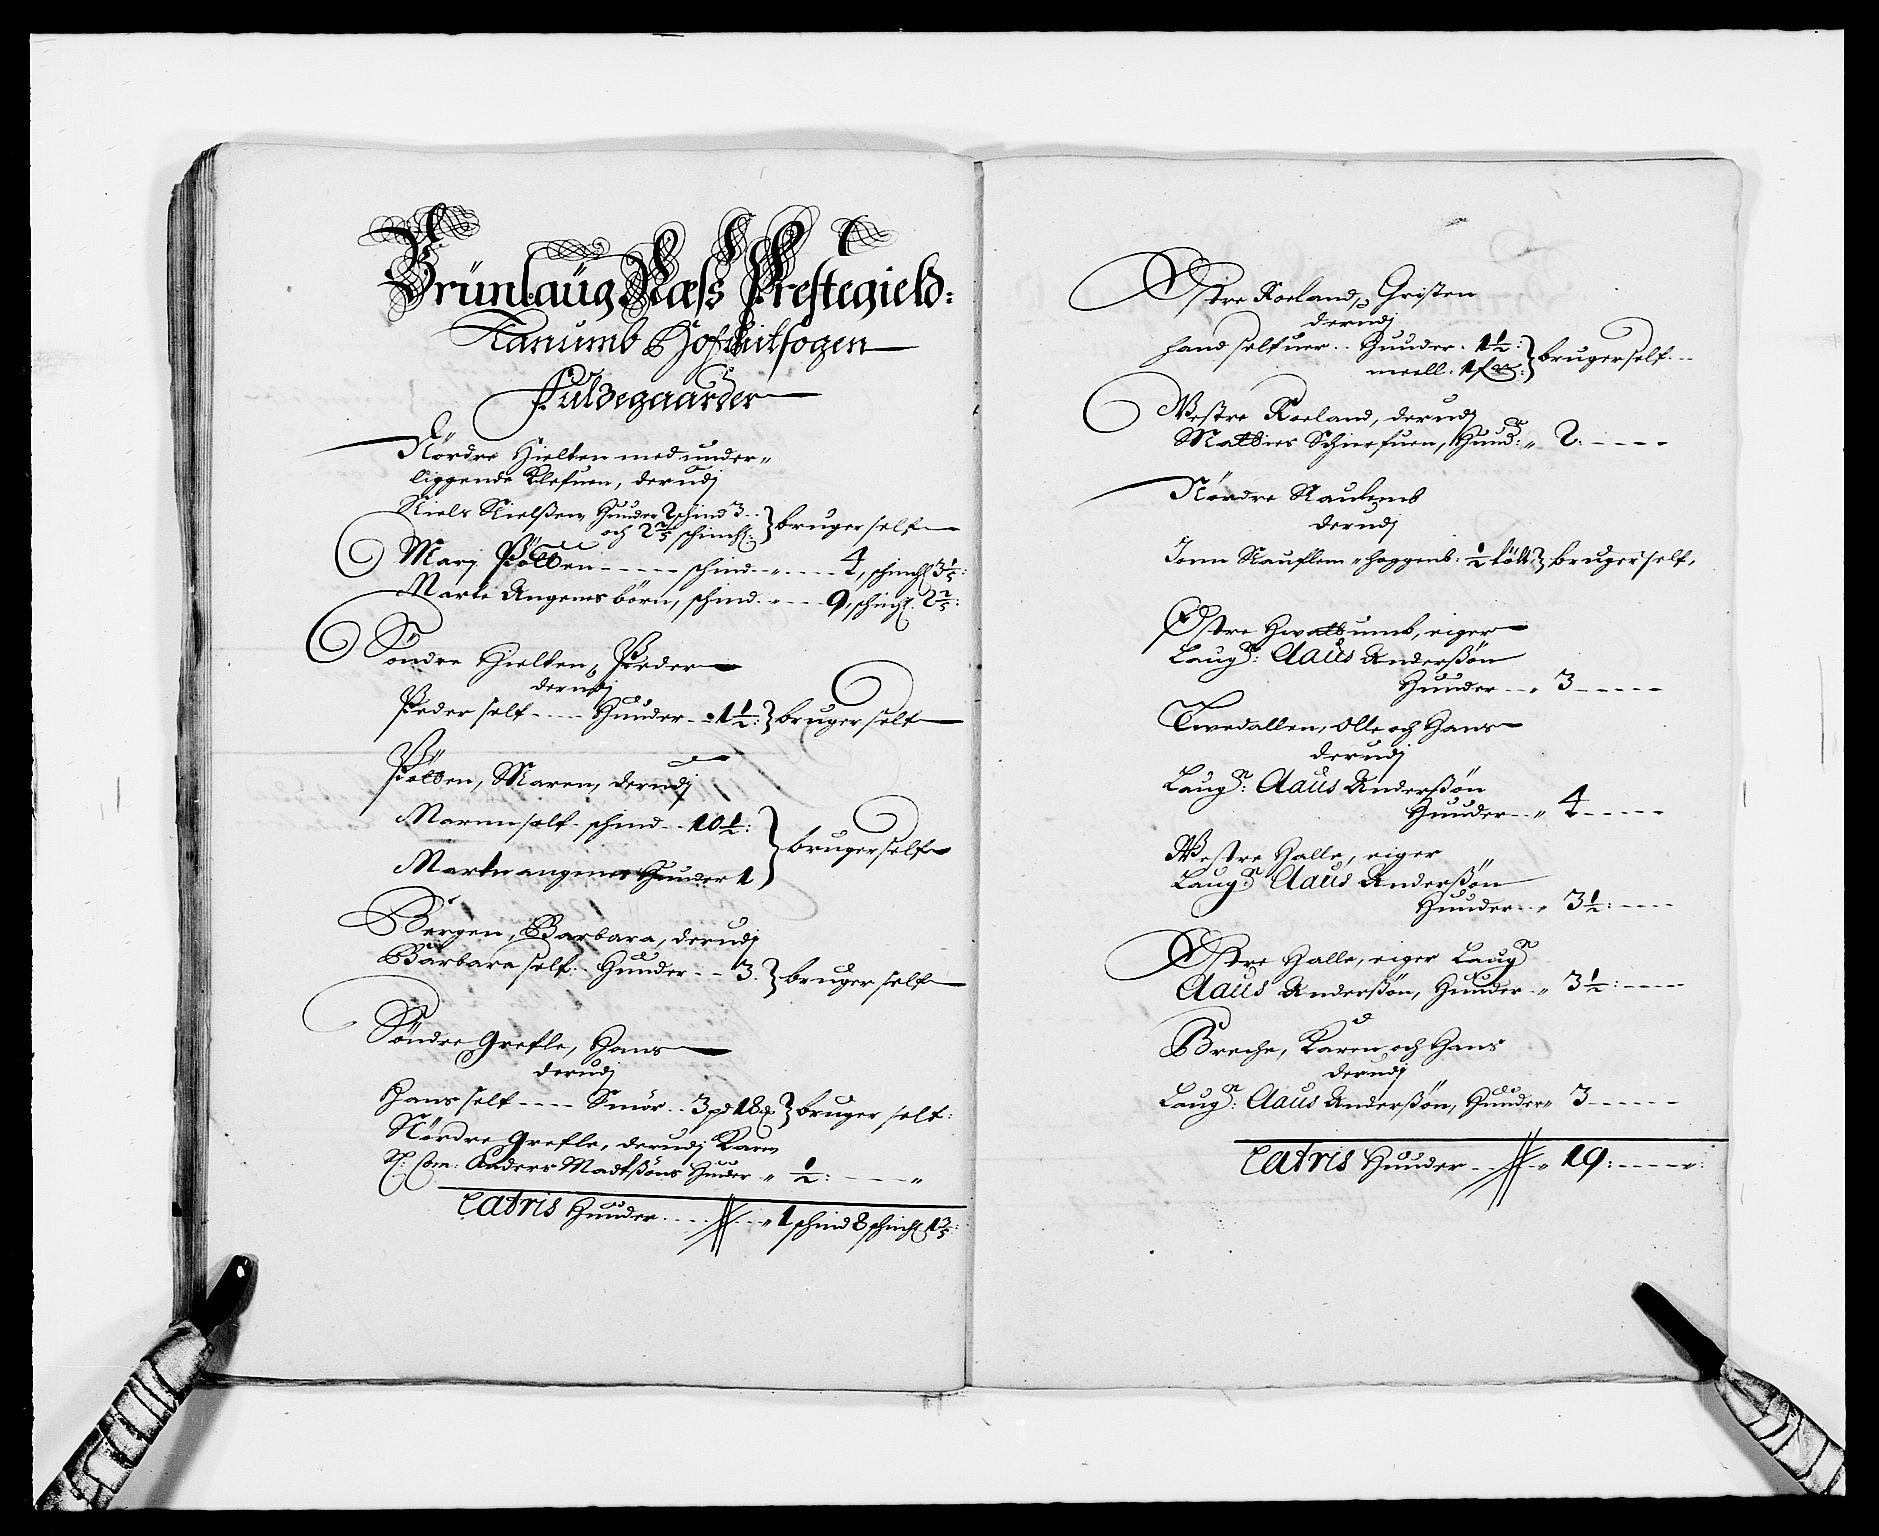 Brünlaüg Næss Prestegield:
Tanumb Hofvitsogen
Fuldegaarder
Nördre Hielten med under-
liggende Klefuen, derudj
Niels Nielsßen, Huuder 2 schind 3
och 2 2/5 schinchl: } bruger self
Mari Pölden ----- schind " ---- 4, schinchl 3 1/5:
Marte Angenes börn, schind " --- 9, schinchl. 2 2/5:
Söndre Hielten, Peder
derudj
Peder self ---- Huuder -- 1 1/2: } bruger self
Pölden, Maren, derudj
Maren self - schind -- 10 1/2:
Marte angenes Huuder 1 } bruger self
Bergen, Barbara, derudj
Barbara self -- Huuder -- 3. } bruger self
Söndre Grefle, Hans
derudj
Hans self ---- Smör -- 3 pd 18 } bruger self:
Nördre Grefle, derudj Karen
Sl: Com: Anders Madtßöns Huder " 1/2: --- "
Latris Huuder ---- " 1 schind 8 schinchl 1 3/5:
Östre Roeland, Christen
derudj
hand self uer -- Huuder - 1 1/2:
meell - 1 } bruger self --
Westre Roeland, derudj
Matties Schrefuen, Huud: " 2: ----
Nördre Naulumb
derudj
Jonn Nauflem " hoggenb: 1/2 } bruger self,
Östre Hvattumb, eiger
Laugm: Claus Anderßön
Huuder -- " 3 -----
Tvedallen, Olle och Hans
derudj
Laugm: Claus Anderßön
Huuder -- " 4 -----
Westre Halle, eiger
Laugm: Claus Anderßön
Huuder -- " 3 1/2: ----
Östre Halle, eiger Laugm
Claus Anderßön, Huuder - " 3 1/2: ----
Breche, Karen och Hans
derudj
Laugm: Claus Anderßön, Huuder " 3 -----
Latris Huuder -- " 19: ---- ":